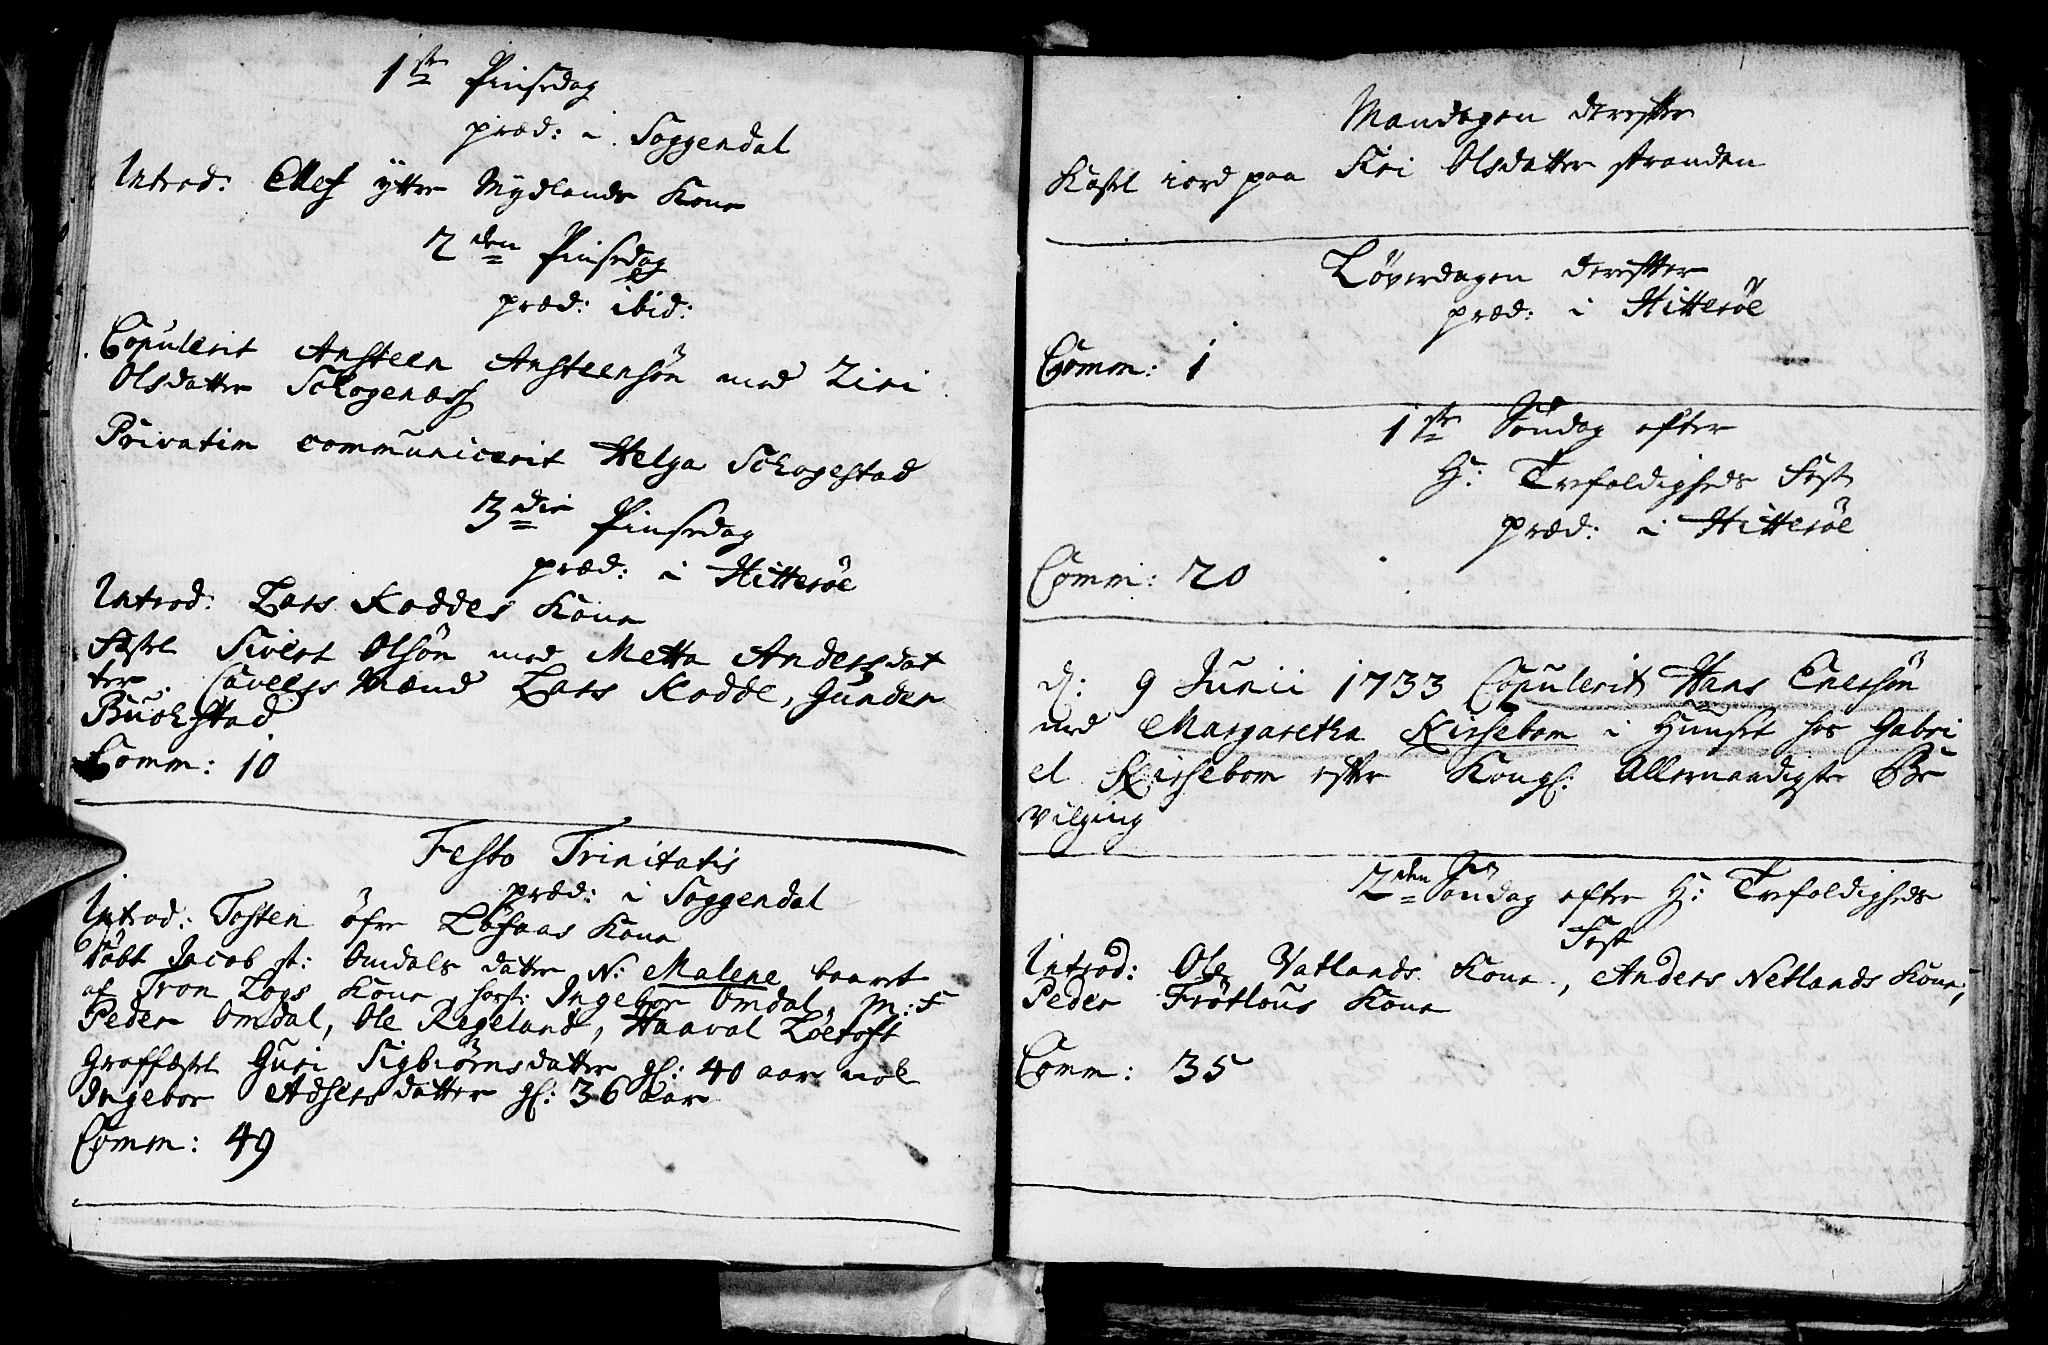 1ste Pinsedag
præd: i Soggendal
Introd: Ellef ytre Mydlands Kone
2den Pinsedag
præd: ibid:
Copulerit Ansteen Ansteensøn med Ziri
Olsdatter Schogenæss
Privatim communicerit Helga Schogestad
3die Pinsedag
præd: i Hitterøe
Introd: Lars Roddes Kone
Fæstet Sivert Olsøn med Metta Andersdat
ter. Caveers Mænd Lars Rodde, Gunder
Buchstad
Comm: 10
Festo Trinitatis
præd: i Soggendal
Introd: Tosten öfre Löfaas Kone
Döbt Jacob st: Omdals datter N: Malene baaret
af Tron Logs Kone, horst: Ingebor Omdal, M: F
Peder Omdal, Ole Regeland, Haaval Löetoft
Graffæstet Guri Sigbiörnsdatter gl: 40 aar nok
Ingebor Adsersdatter gl: 36 aar
Comm: 49
Mandagen derefter
Kastet iord paa Siri Olsdatter stranden
Løverdagen derefter
præd: i Hitterøe
Comm: 1
1ste Søndag efter
H: Trefoldigheds Fest
præd: i Hitterøe
Comm: 20
d: 9 Junii 1733 Copulerit Hans Enersøn
med Margaretha Kirsebom i Huuset hos Gabri
el Kirsebom efter Kongl: Allernaadigste Be
vilging
2den Søndag efter H: Trefoldigheds
Fest
Introd: Ole Vatlands Kone, Anders Netlands Kone,
Peder Frøtlous Kone
Comm: 35